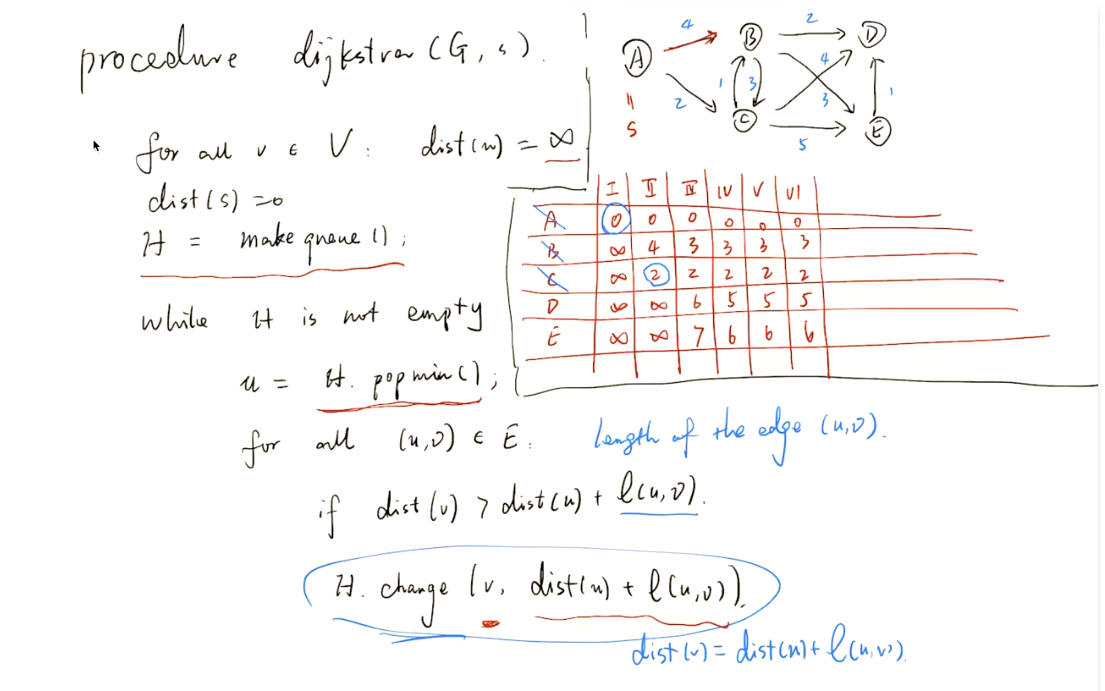 procedure dijkstra (G, s).
for all v ∈ V: dist(u) = ∞
dist(s) = 0
H = makequeue();
while H is not empty
u = H. popmin();
for all (u,v) ∈ E: length of the edge (u,v).
if dist(v) > dist(u) + l(u,v).
H. change (v, dist(u) + l(u,v)).
dist(v) = dist(u) + l(u,v)
4 B 2 D
A 1 3 4
2 3 1
S C 5 E
I II III IV V VI
A 0 0 0 0 0 0
B ∞ 4 3 3 3 3
C ∞ 2 2 2 2 2
D ∞ ∞ 6 5 5 5
E ∞ ∞ 7 6 6 6